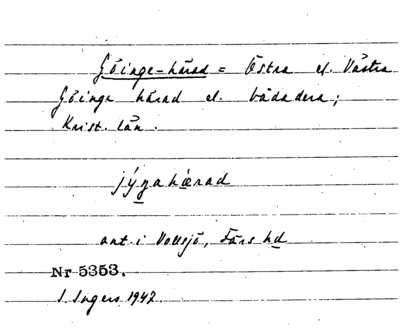 Göinge-härad = Östra el. Västra
Göinge härad el. båda dera;
Krist. län.
jýŋahærad
ant. i Vollsjö, Färs hd
Nr 5353.
I. Ingers 1942.